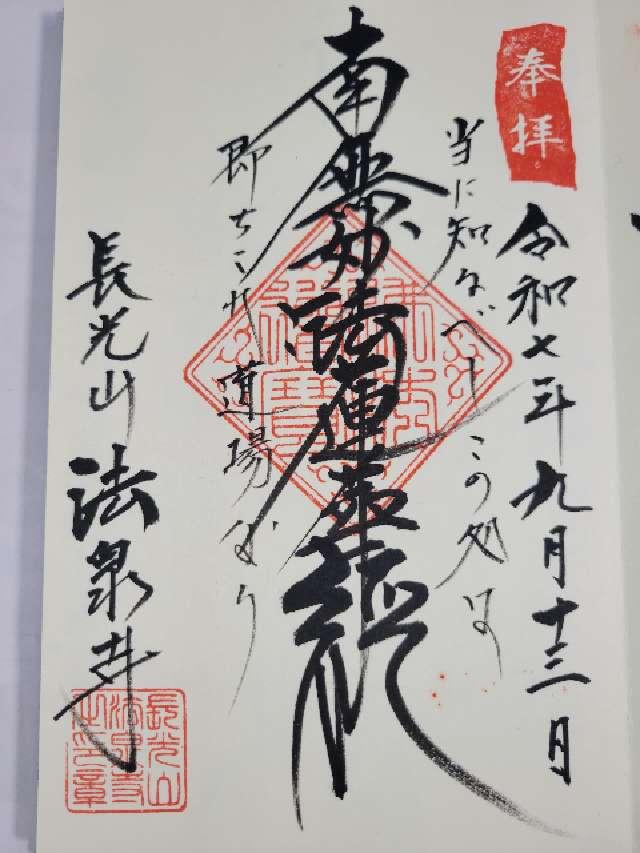 奉拝
令和七年九月十三日
当に知るべしこの処は
南無妙法蓮華経
即ちこれ道場なり
長光山
法泉寺
長光山
法泉寺
之印章